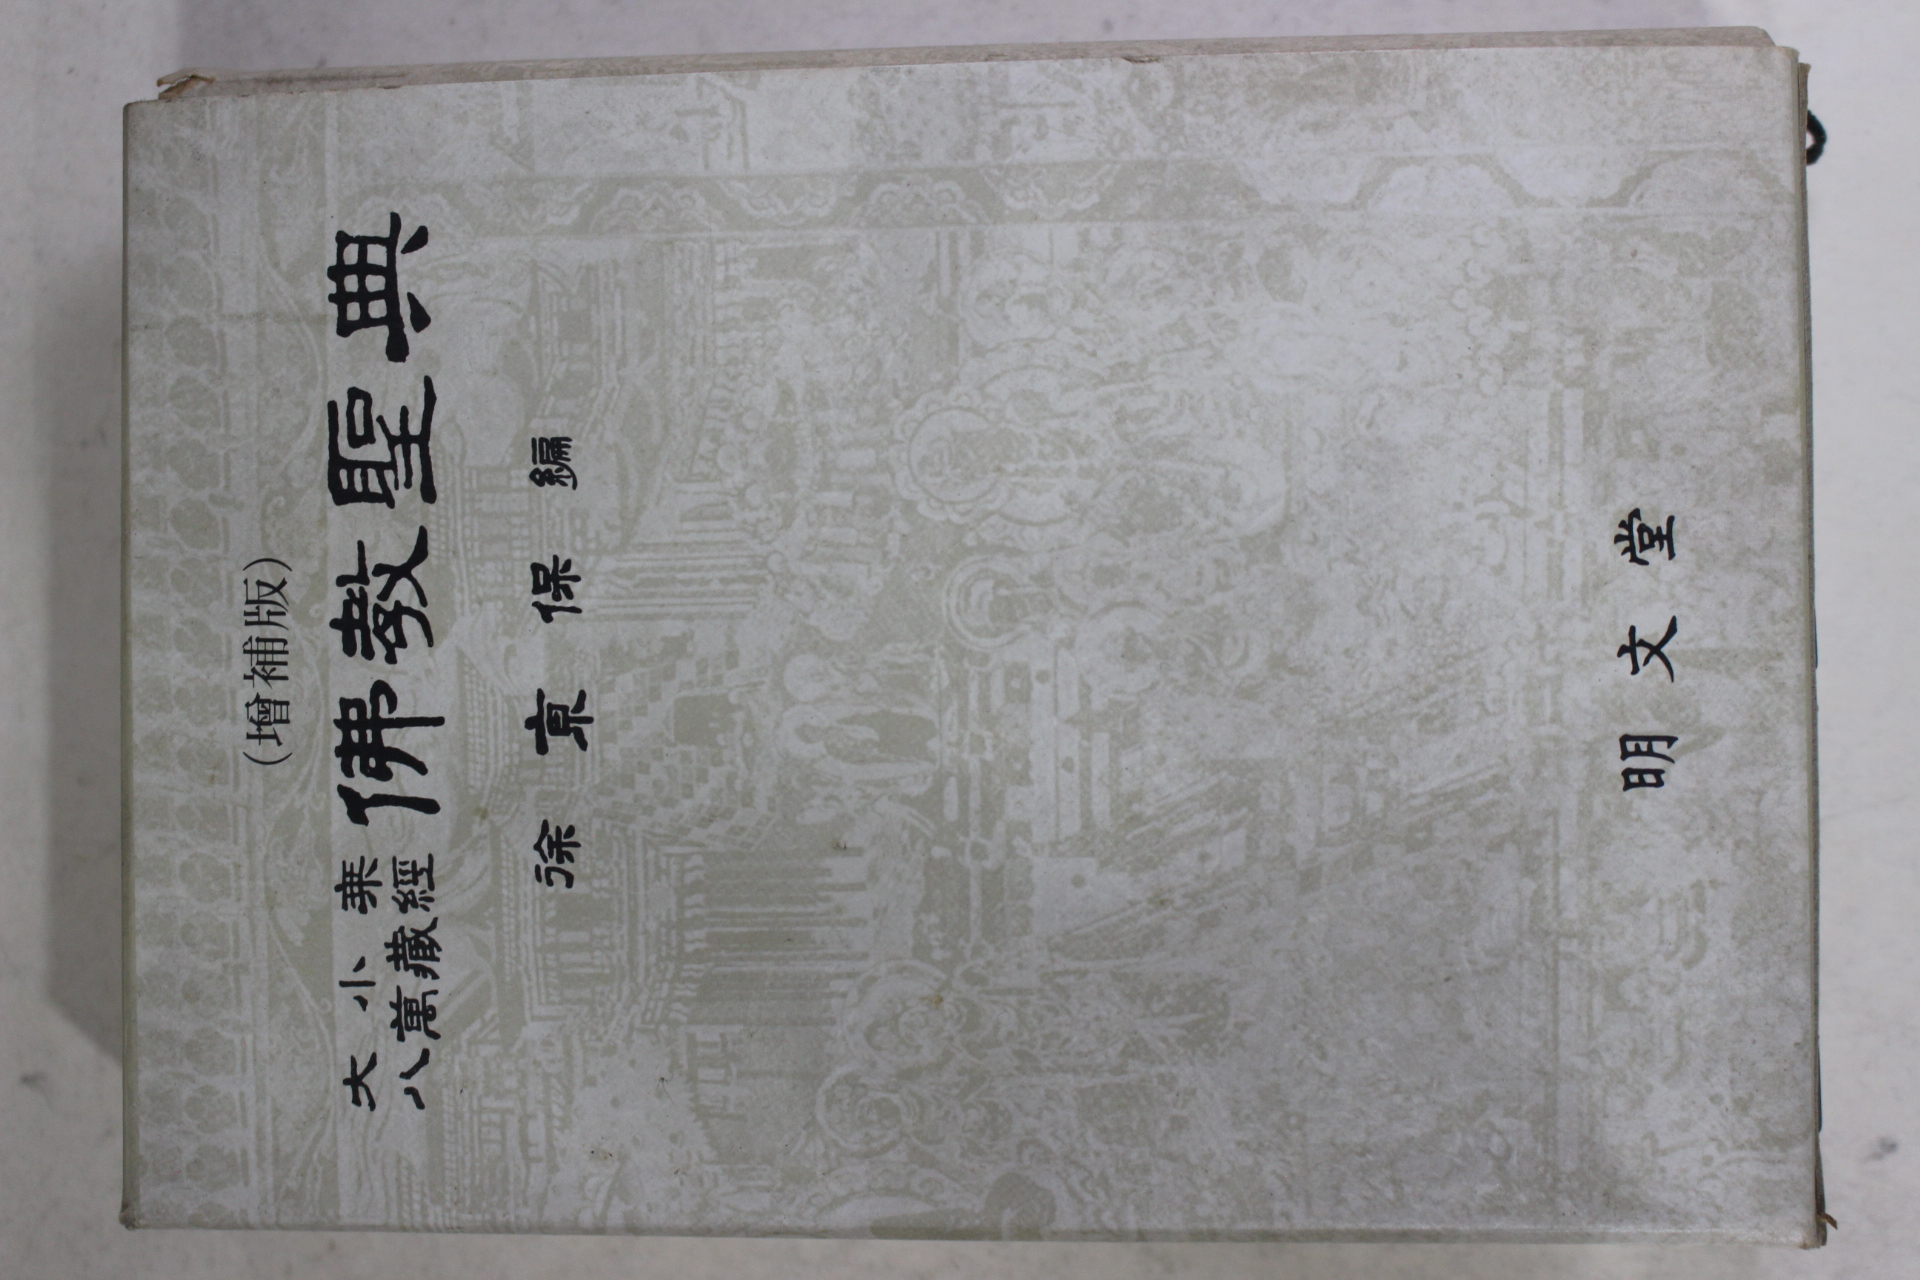 (增補版)
大小乘
八萬藏經
佛教聖典
徐京保編
明文堂